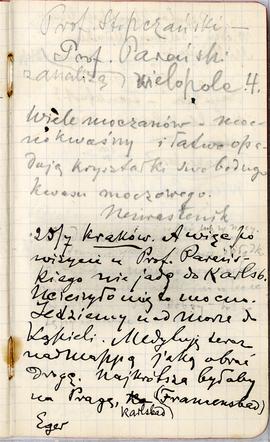 Prof. Stopczański —
Prof. Pareński
z analizą Wielopole 4.
Wiele moczanów – mocz
kwaśny i łatwo opa-
dają kryształki swobodnego
kwasu moczowego.
Neurastenik
25/7 Kraków. A więc po
wizycie u Prof. Pareńs-
kiego nie jadę do Karlsb.
Ucieszyło mię to mocno.
Jedziemy nad morze do
Kąpieli. Medytuję teraz
nad mappą jaką obrać
drogę. Najkrótsza byłaby
na Pragę, (Framensbad)
Karlsbad
Eger